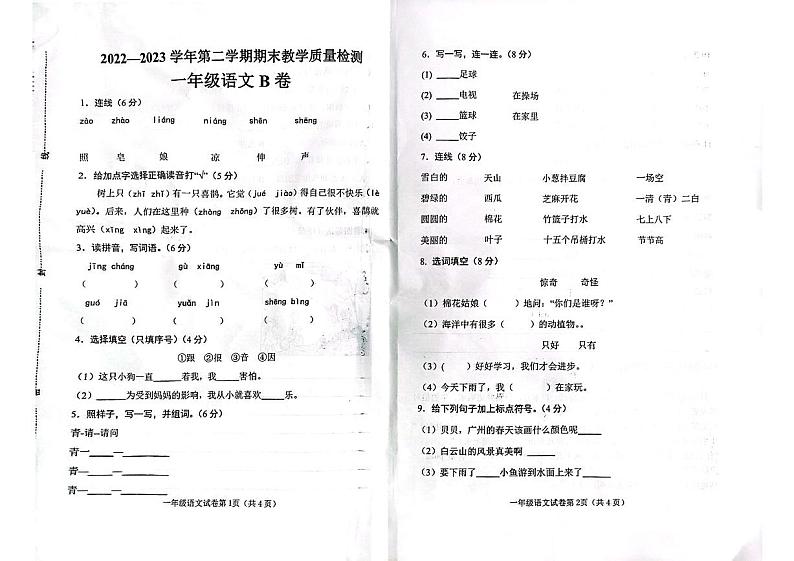 2022—2023 学年第二学期期末教学质量检测
一年级语文 B 卷
1. 连线(6 分)
zào zhào liáng niáng shēn shēng
照 皂 娘 凉 伸 声
2. 给加点字选择正确读音打“√”(5 分)
树上只(zhī zhǐ)有一只喜鹊。它觉(jué jiào)得自己很不快乐(lè
yuè)。后来，人们在这里种(zhòng zhǒng)了很多树。有了伙伴，喜鹊就
高兴(xīng xìng)起来了。
3. 读拼音，写词语。(6 分)
jīng cháng gù xiāng yù mǐ
( ) ( ) ( )
guó jiā yuǎn jìn shēng bìng
( ) ( ) ( )
4. 选择填空(只填序号)(4 分)
①跟 ②很 ③音 ④因
(1) 这只小狗一直____若我，我____害怕。
(2) ____为受到妈妈的影响，我从小就喜欢____乐。
5. 照样子，写一写，并组词。(6 分)
青-请--请问
青一____—________
青—____—________
青—____—________
一年级语文试卷第 1页（共 4 页）
6. 写一写，连一连。(8 分)
(1) ____足球
(2) ____电视 在操场
(3) ____篮球 在家里
(4) ____饺子
7. 连线(8 分)
雪白的 天山 小葱拌豆腐 一场空
碧绿的 西瓜 芝麻开花 一清（青）二白
圆圆的 棉花 竹篮子打水 七上八下
美丽的 叶子 十五个吊桶打水 节节高
8. 选词填空(8 分)
惊奇 奇怪
(1) 棉花姑娘( )地问：“你们是谁呀？”
(2) 海洋中有很多( )的动植物。。
只好 只有
(3) ( )好好学习，我们才会进步。
(4) 今天下雨了，我( )在家玩。
9. 给下列句子加上标点符号。(4 分)
(1) 贝贝，广州的春天该画什么颜色呢____
(2) 白云山的风景真美啊 ____
(3) 要下雨了____小鱼游到水面上来了____
一年级语文试卷第 2页（共 4 页）